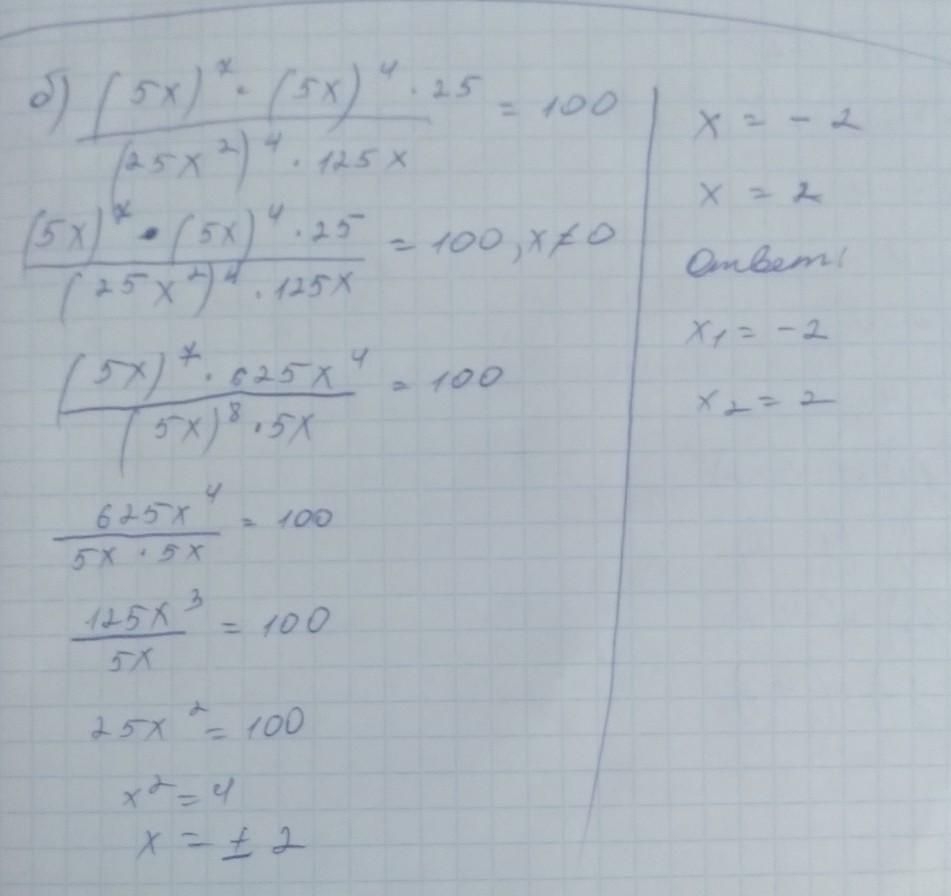 б) (5x)⁷ · (5x)⁴ · 25 / (25x²)⁴ · 125x = 100
(5x)⁷ · (5x)⁴ · 25 / (25x²)⁴ · 125x = 100, x ≠ 0
(5x)⁷ · 625x⁴ / (5x)⁸ · 5x = 100
625x⁴ / 5x · 5x = 100
125x³ / 5x = 100
25x² = 100
x² = 4
x = ± 2
x = - 2
x = 2
Ответ:
x₁ = -2
x₂ = 2